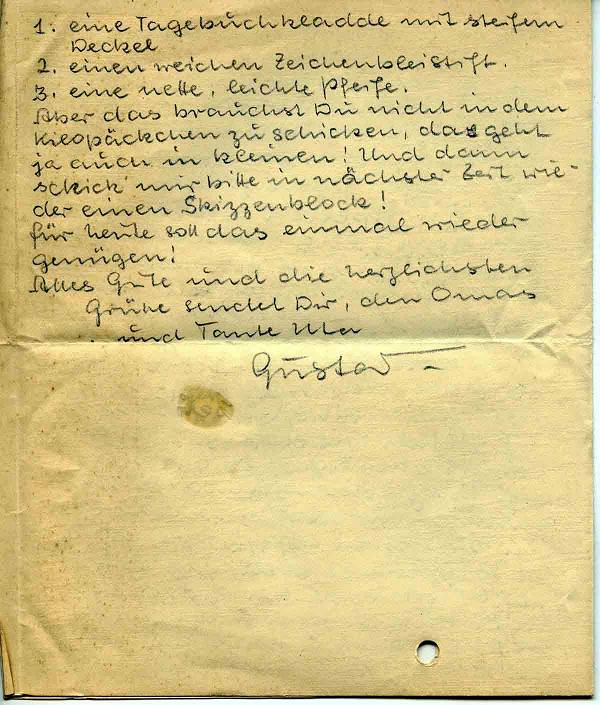 1. eine Tagebuchkladde mit steifem
Deckel
2. einen weichen Zeichenbleistift.
3. eine nette, leichte Pfeife.
Aber das brauchst Du nicht in dem
Kilopäckchen zu schicken, das geht
ja auch in kleinen! Und dann
schick' mir bitte in nächster Zeit wie-
der einen Skizzenblock!
Für heute soll das einmal wieder
genügen!
Alles Gute und die herzlichsten
Grüße sendet Dir, den Omas
und Tante
Gustav